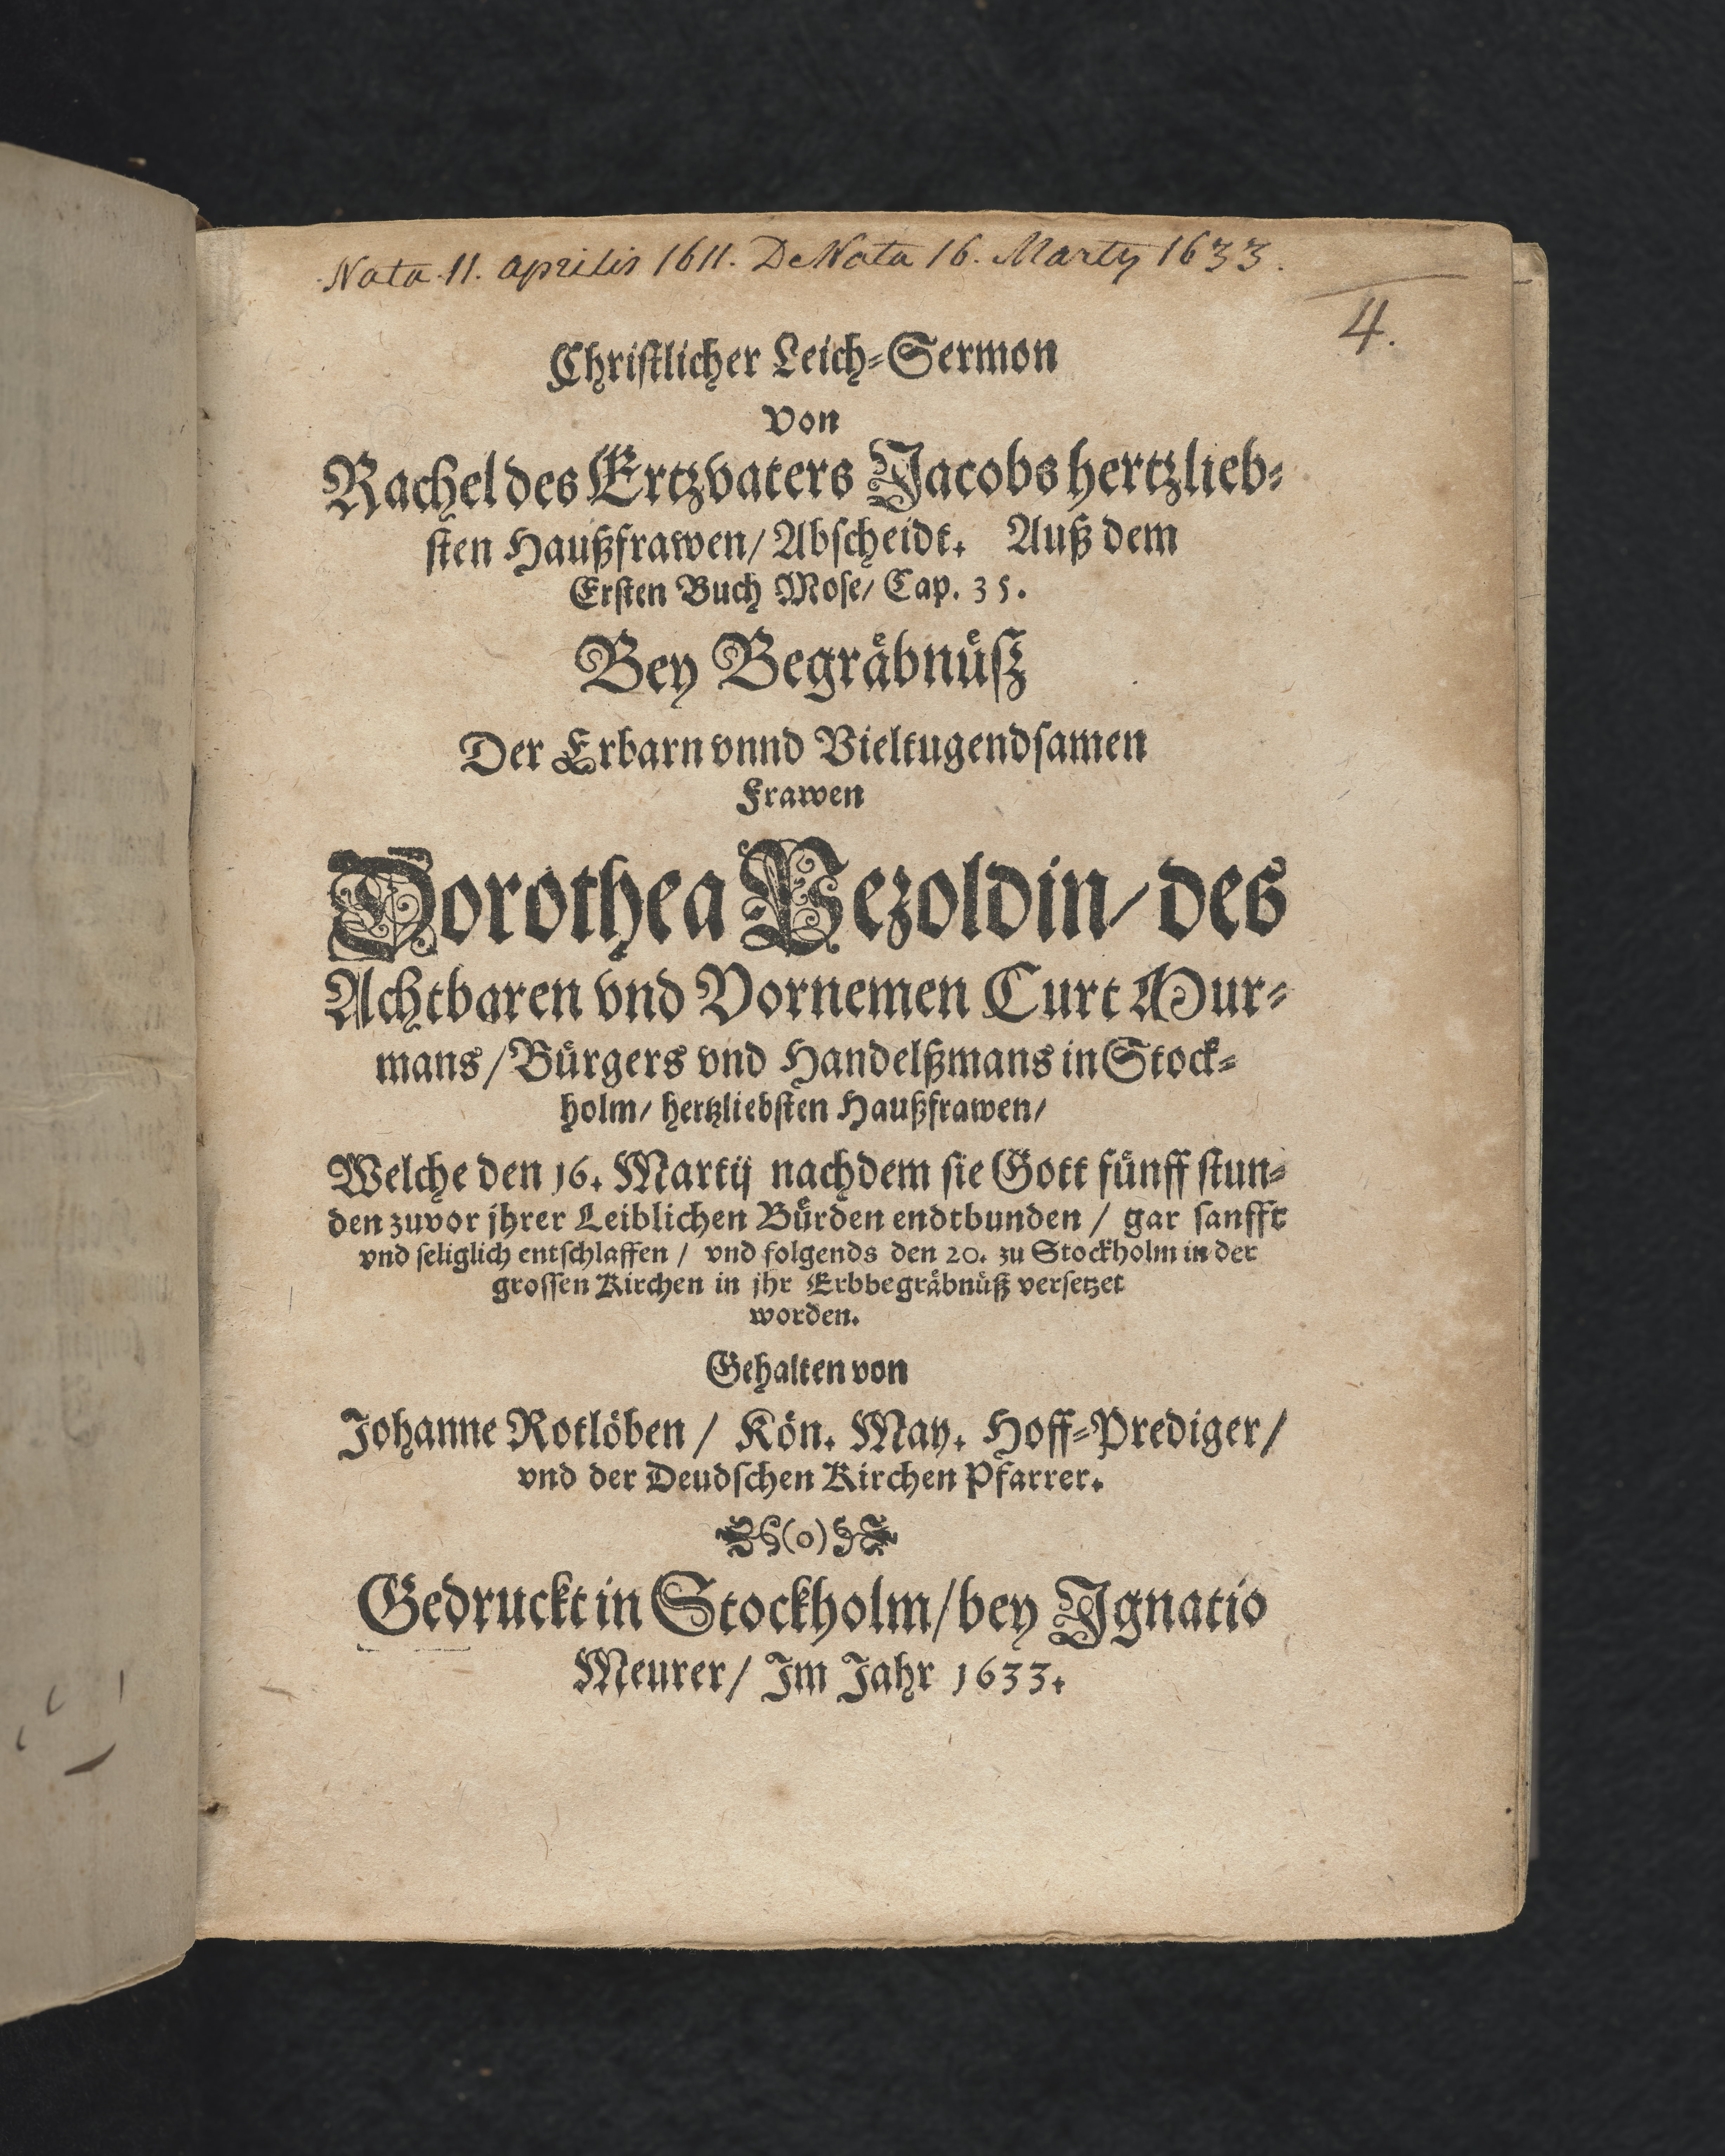 Nata 11. Aprilis 1611. DeNata 16. Martij 1633.
4.
Christlicher Leich-Sermon
von
Rachel des Ertzvaters Jacobs hertzlieb-
sten Haußfrawen/ Abscheidt. Auß dem
Ersten Buch Mose/ Cap. 35.
Bey Begräbnüß
Der Erbarn vnnd Vieltugendsamen
Frawen
Dorothea Pezoldin/ des
Achtbaren vnd Vornemen Curt Mur-
mans/ Bürgers vnd Handelßmans in Stock-
holm/ hertzliebsten Haußfrawen/
Welche den 16. Martij nachdem sie Gott fünff stun-
den zuvor jhrer Leiblichen Bürden endtbunden / gar sanfft
vnd seliglich entschlaffen / vnd folgends den 20. zu Stockholm in der
grossen Kirchen in jhr Erbbegräbnüß versetzet
worden.
Gehalten von
Johanne Rotlöben / Kön. May. Hoff-Prediger/
vnd der Deudschen Kirchen Pfarrer.
(o)
Gedruckt in Stockholm/ bey Ignatio
Meurer/ Im Jahr 1633.